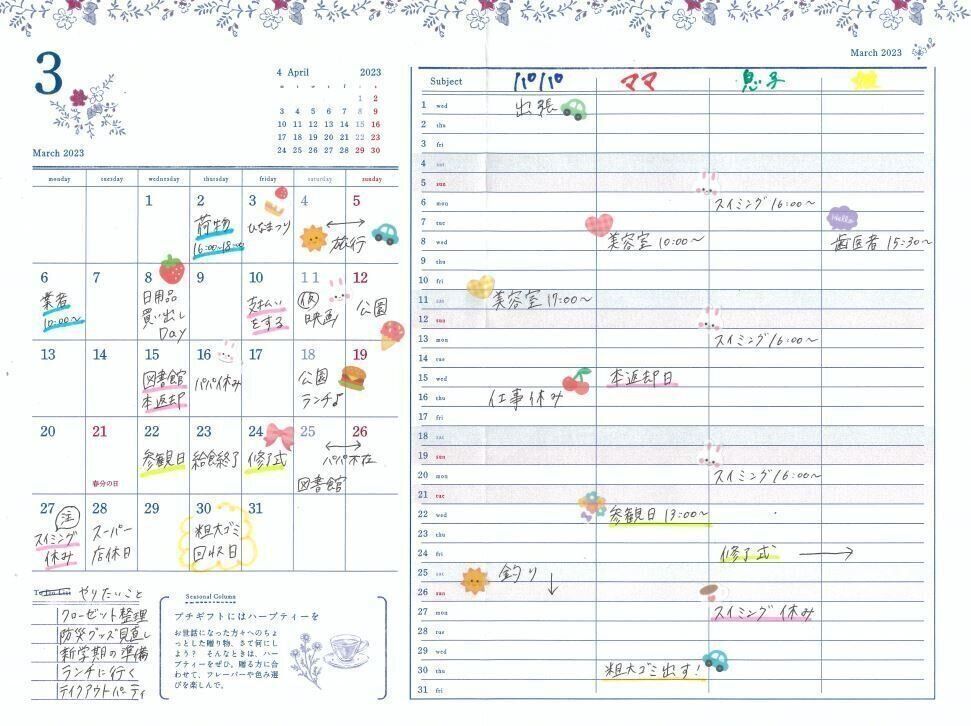 3
4 April 2023
m t w t f s s
1 2
3 4 5 6 7 8 9
10 11 12 13 14 15 16
17 18 19 20 21 22 23
24 25 26 27 28 29 30
March 2023
monday tuesday wednesday thursday friday saturday sunday
1 2 3 4 5
荷物
16:00~18:00
ひなまつり
旅行
6 7 8 9 10 11 12
業者
10:00~
日用品
買い出し
Day
支払い
をする
(仮)
映画
公園
13 14 15 16 17 18 19
図書館
本返却
パパ休み
公園
ランチ♪
20 21 22 23 24 25 26
春分の日
参観日
給食終了
修了式
パパ不在
図書館
27 28 29 30 31
注
スイミング
休み
スーパー
店休日
粗大ゴミ
回収日
やりたいこと
クローゼット整理
防災グッズ見直し
新学期の準備
ランチに行く
テイクアウトパーティ
Seasonal Column
プチギフトにはハーブティーを
お世話になった方々へのちょ
っとした贈り物、さて何にし
よう? そんなときは、ハー
ブティーをぜひ。贈る方に合
わせて、フレーバーや色み選
びを楽しんで。
March 2023
Subject パパ ママ 息子 娘
1 wed 出張
2 thu
3 fri
4 sat
5 sun
6 mon スイミング16:00~
7 tue Hello
8 wed 美容室 10:00~ 歯医者 15:30~
9 thu
10 fri
11 sat 美容室 17:00~
12 sun
13 mon スイミング16:00~
14 tue
15 wed 本返却日
16 thu 仕事休み
17 fri
18 sat
19 sun
20 mon スイミング16:00~
21 tue
22 wed 参観日 13:00~
23 thu
24 fri 修了式 →
25 sat 釣り ↓
26 sun
27 mon スイミング 休み
28 tue
29 wed
30 thu 粗大ゴミ出す!
31 fri